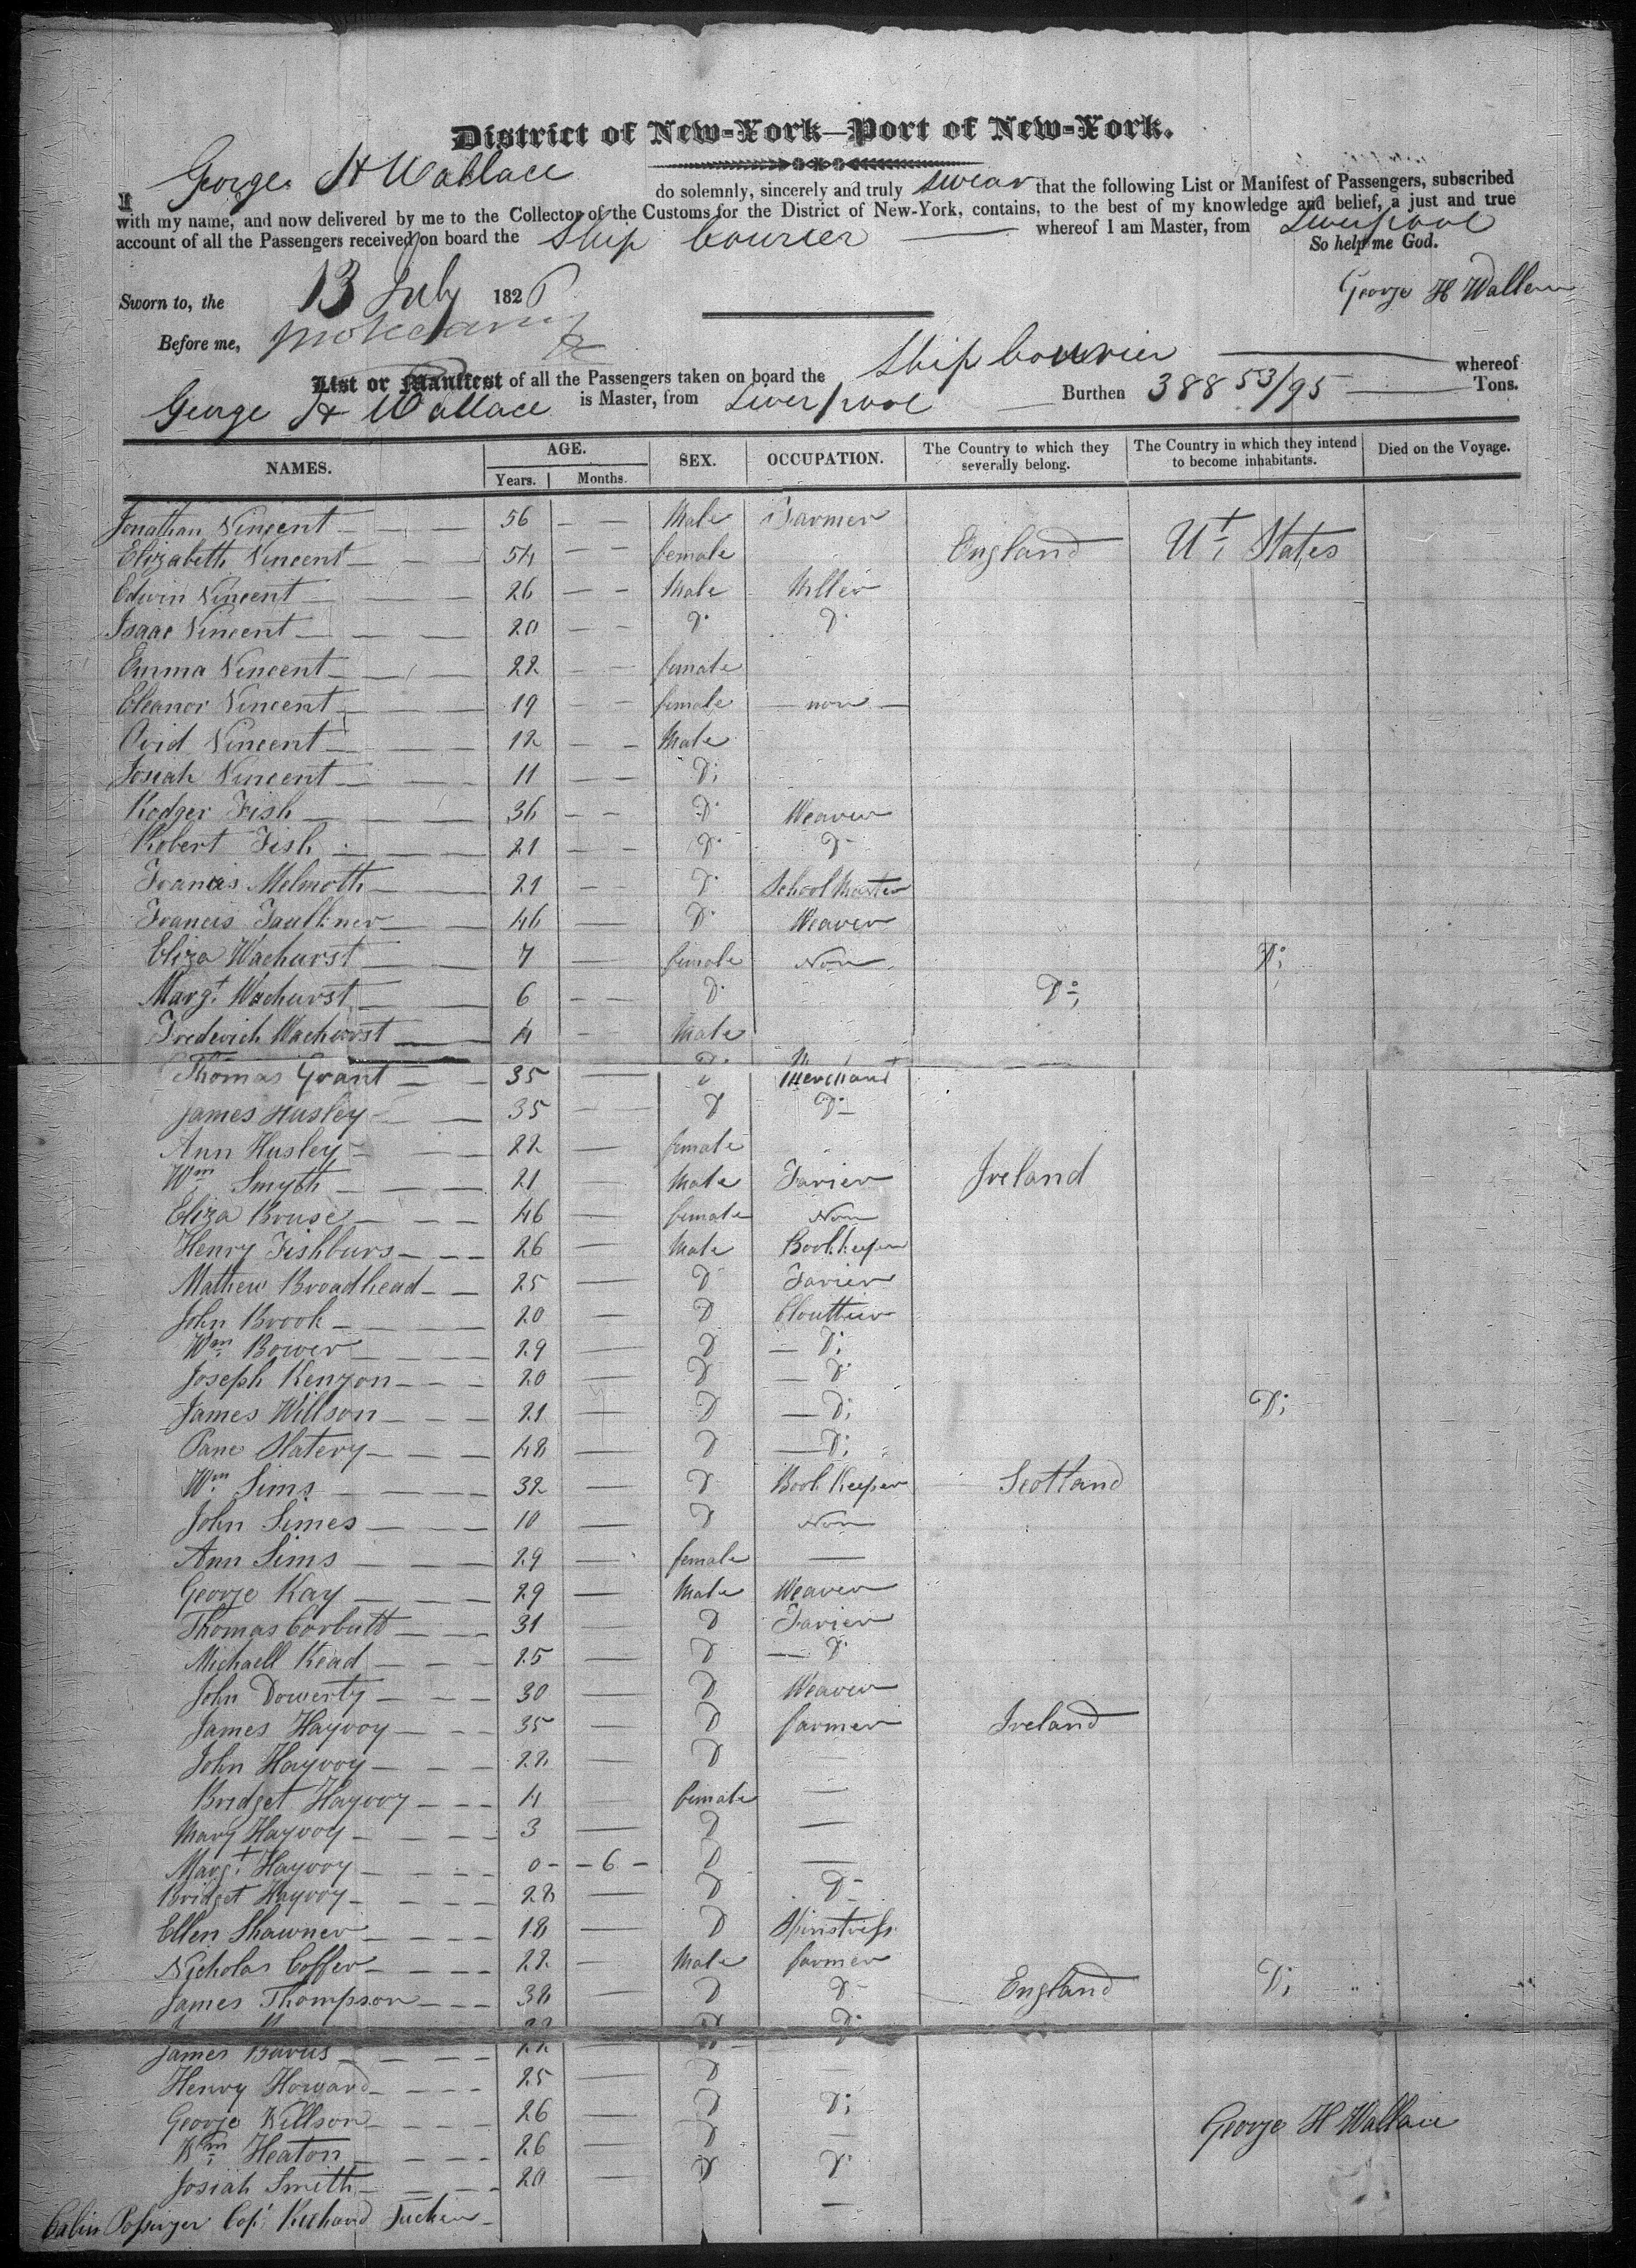 District of New-York—Port of New-York.
I George H Wallace do solemnly, sincerely and truly swear that the following List or Manifest of Passengers, subscribed
with my name, and now delivered by me to the Collector of the Customs for the District of New-York, contains, to the best of my knowledge and belief, a just and true
account of all the Passengers received on board the Ship Courier — whereof I am Master, from Liverpool
So help me God.
Sworn to, the 13 July 1826 George H Wallace
Before me,
List or Manifest of all the Passengers taken on board the Ship Courier — whereof
George H Wallace is Master, from Liverpool — Burthen 388 53/95 — Tons.
NAMES. AGE. SEX. OCCUPATION. The Country to which they severally belong. The Country in which they intend to become inhabitants. Died on the Voyage.
Years. Months.
Jonathan Vincent 56 Male Farmer
Elizabeth Vincent 54 female England Ut. States
Edwin Vincent 26 Male Miller
Isaac Vincent 20 Do Do
Emma Vincent 22 female
Eleanor Vincent 19 female non
Ovid Vincent 12 Male
Josiah Vincent 11 Do
Rodger Fish 36 Do Weaver
Robert Fish 21 Do Do
Francis Melmoth 21 Do School Master
Francis Faulkner 46 Do Weaver
Eliza Wachurst 7 female Non Do
Margt. Wachurst 6 Do Do
Frederich Wachurst 4 Male
Thomas Grant 35 D Merchant
James Husley 35 D Do
Ann Husley 22 female
Wm Smyth 21 Male Farier Ireland
Eliza Bruse 46 female Non
Henry Fishburs 26 Male Bookkeeper
Mathew Broadhead 25 D Farier
John Brook 20 D Clouttier
Wm Bower 29 D Do
Joseph Kenyon 20 D Do
James Willson 21 D Do Do
Pane Slatery 48 D Do
Wm Sims 32 D Book Keeper Scotland
John Simes 10 D Non
Ann Sims 29 female —
George Kay 29 Male Weaver
Thomas Corbutt 31 D Farier
Michaell Kead 25 D Do
John Dowerty 30 D Weaver
James Hayvoy 35 D farmer Ireland
John Hayvoy 22 D
Bridget Hayvoy 4 female —
Mary Hayvoy 3 D —
Margt. Hayvoy 0 6 D —
Bridget Hayvoy 28 D D
Ellen Shawner 18 D Spinstress
Nicholas Coffer 22 Male farmer
James Thompson 38 D D England Do
James Barus 22 D Do
Henry Howard 25 D —
George Willson 26 D Do
Wm Heaton 26 D —
Josiah Smith 20 D Do
George H Wallace
Cabin Passenger Capt Richard Tucker —